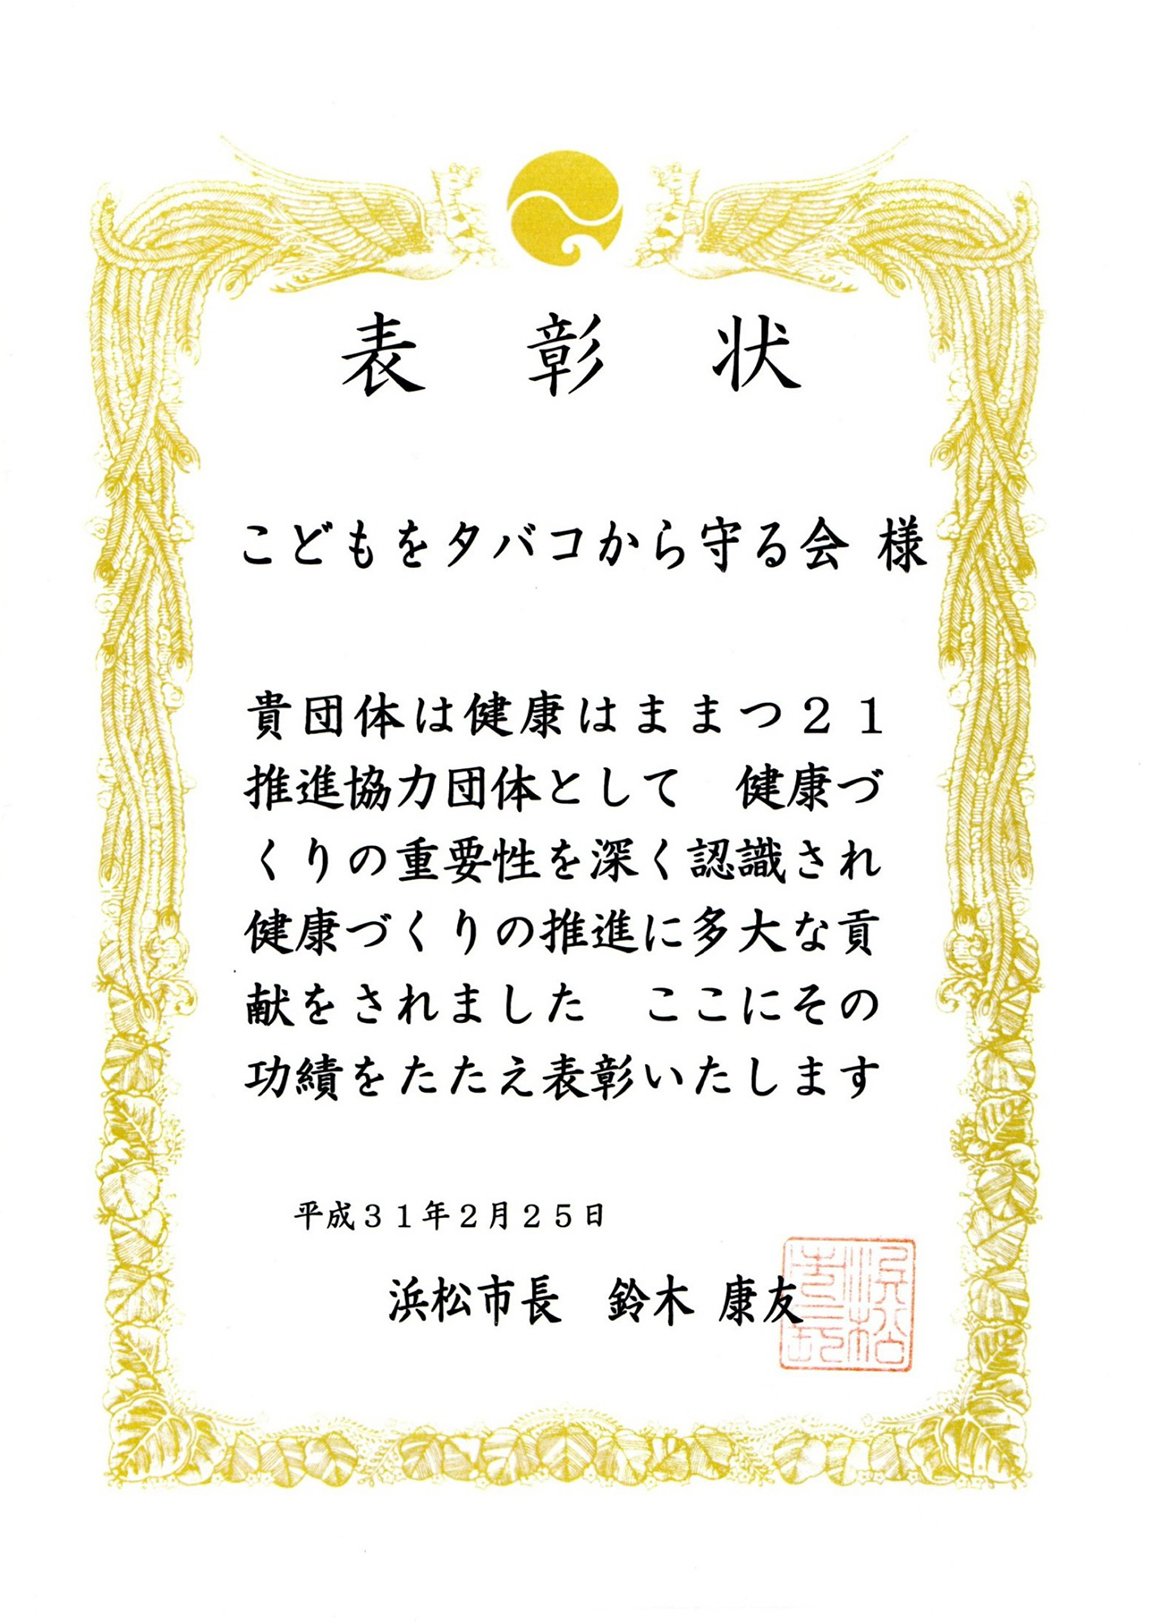 表彰状
こどもをタバコから守る会 様
貴団体は健康はままつ２１
推進協力団体として　健康づ
くりの重要性を深く認識され
健康づくりの推進に多大な貢
献をされました　ここにその
功績をたたえ表彰いたします
平成３１年２月２５日
浜松市長　鈴木 康友